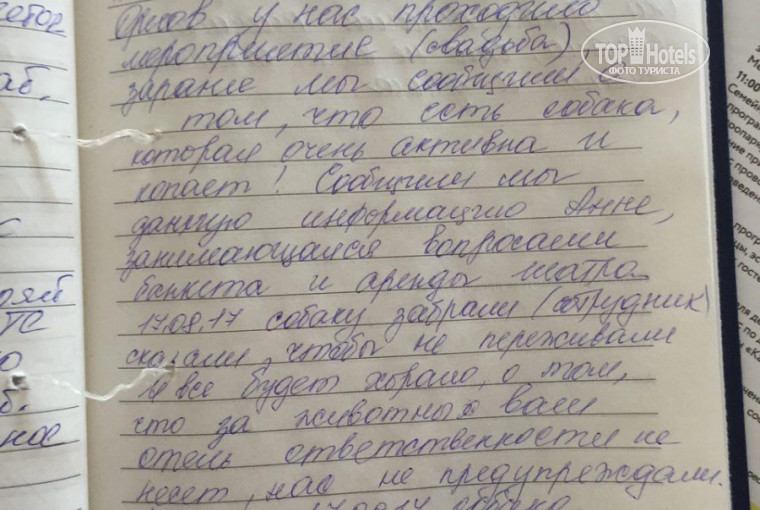 у нас проходило
мероприятие (свадьба)
заранее мы сообщили о
том, что есть собака,
которая очень активна и
копает! Сообщили мы
данную информацию Анне,
занимающаяся вопросами
банкета и аренды шатра
17.08.17 собаку забрали (сотрудник)
сказали, чтобы не переживали
и все будет хорошо, о том,
что за животных ваш
отель ответственности не
несет, нас не предупреждали.
собака
TOP Hotels
ФОТО ТУРИСТА
аб.
с
ТС
ю
б.
ное
11:00
Семей